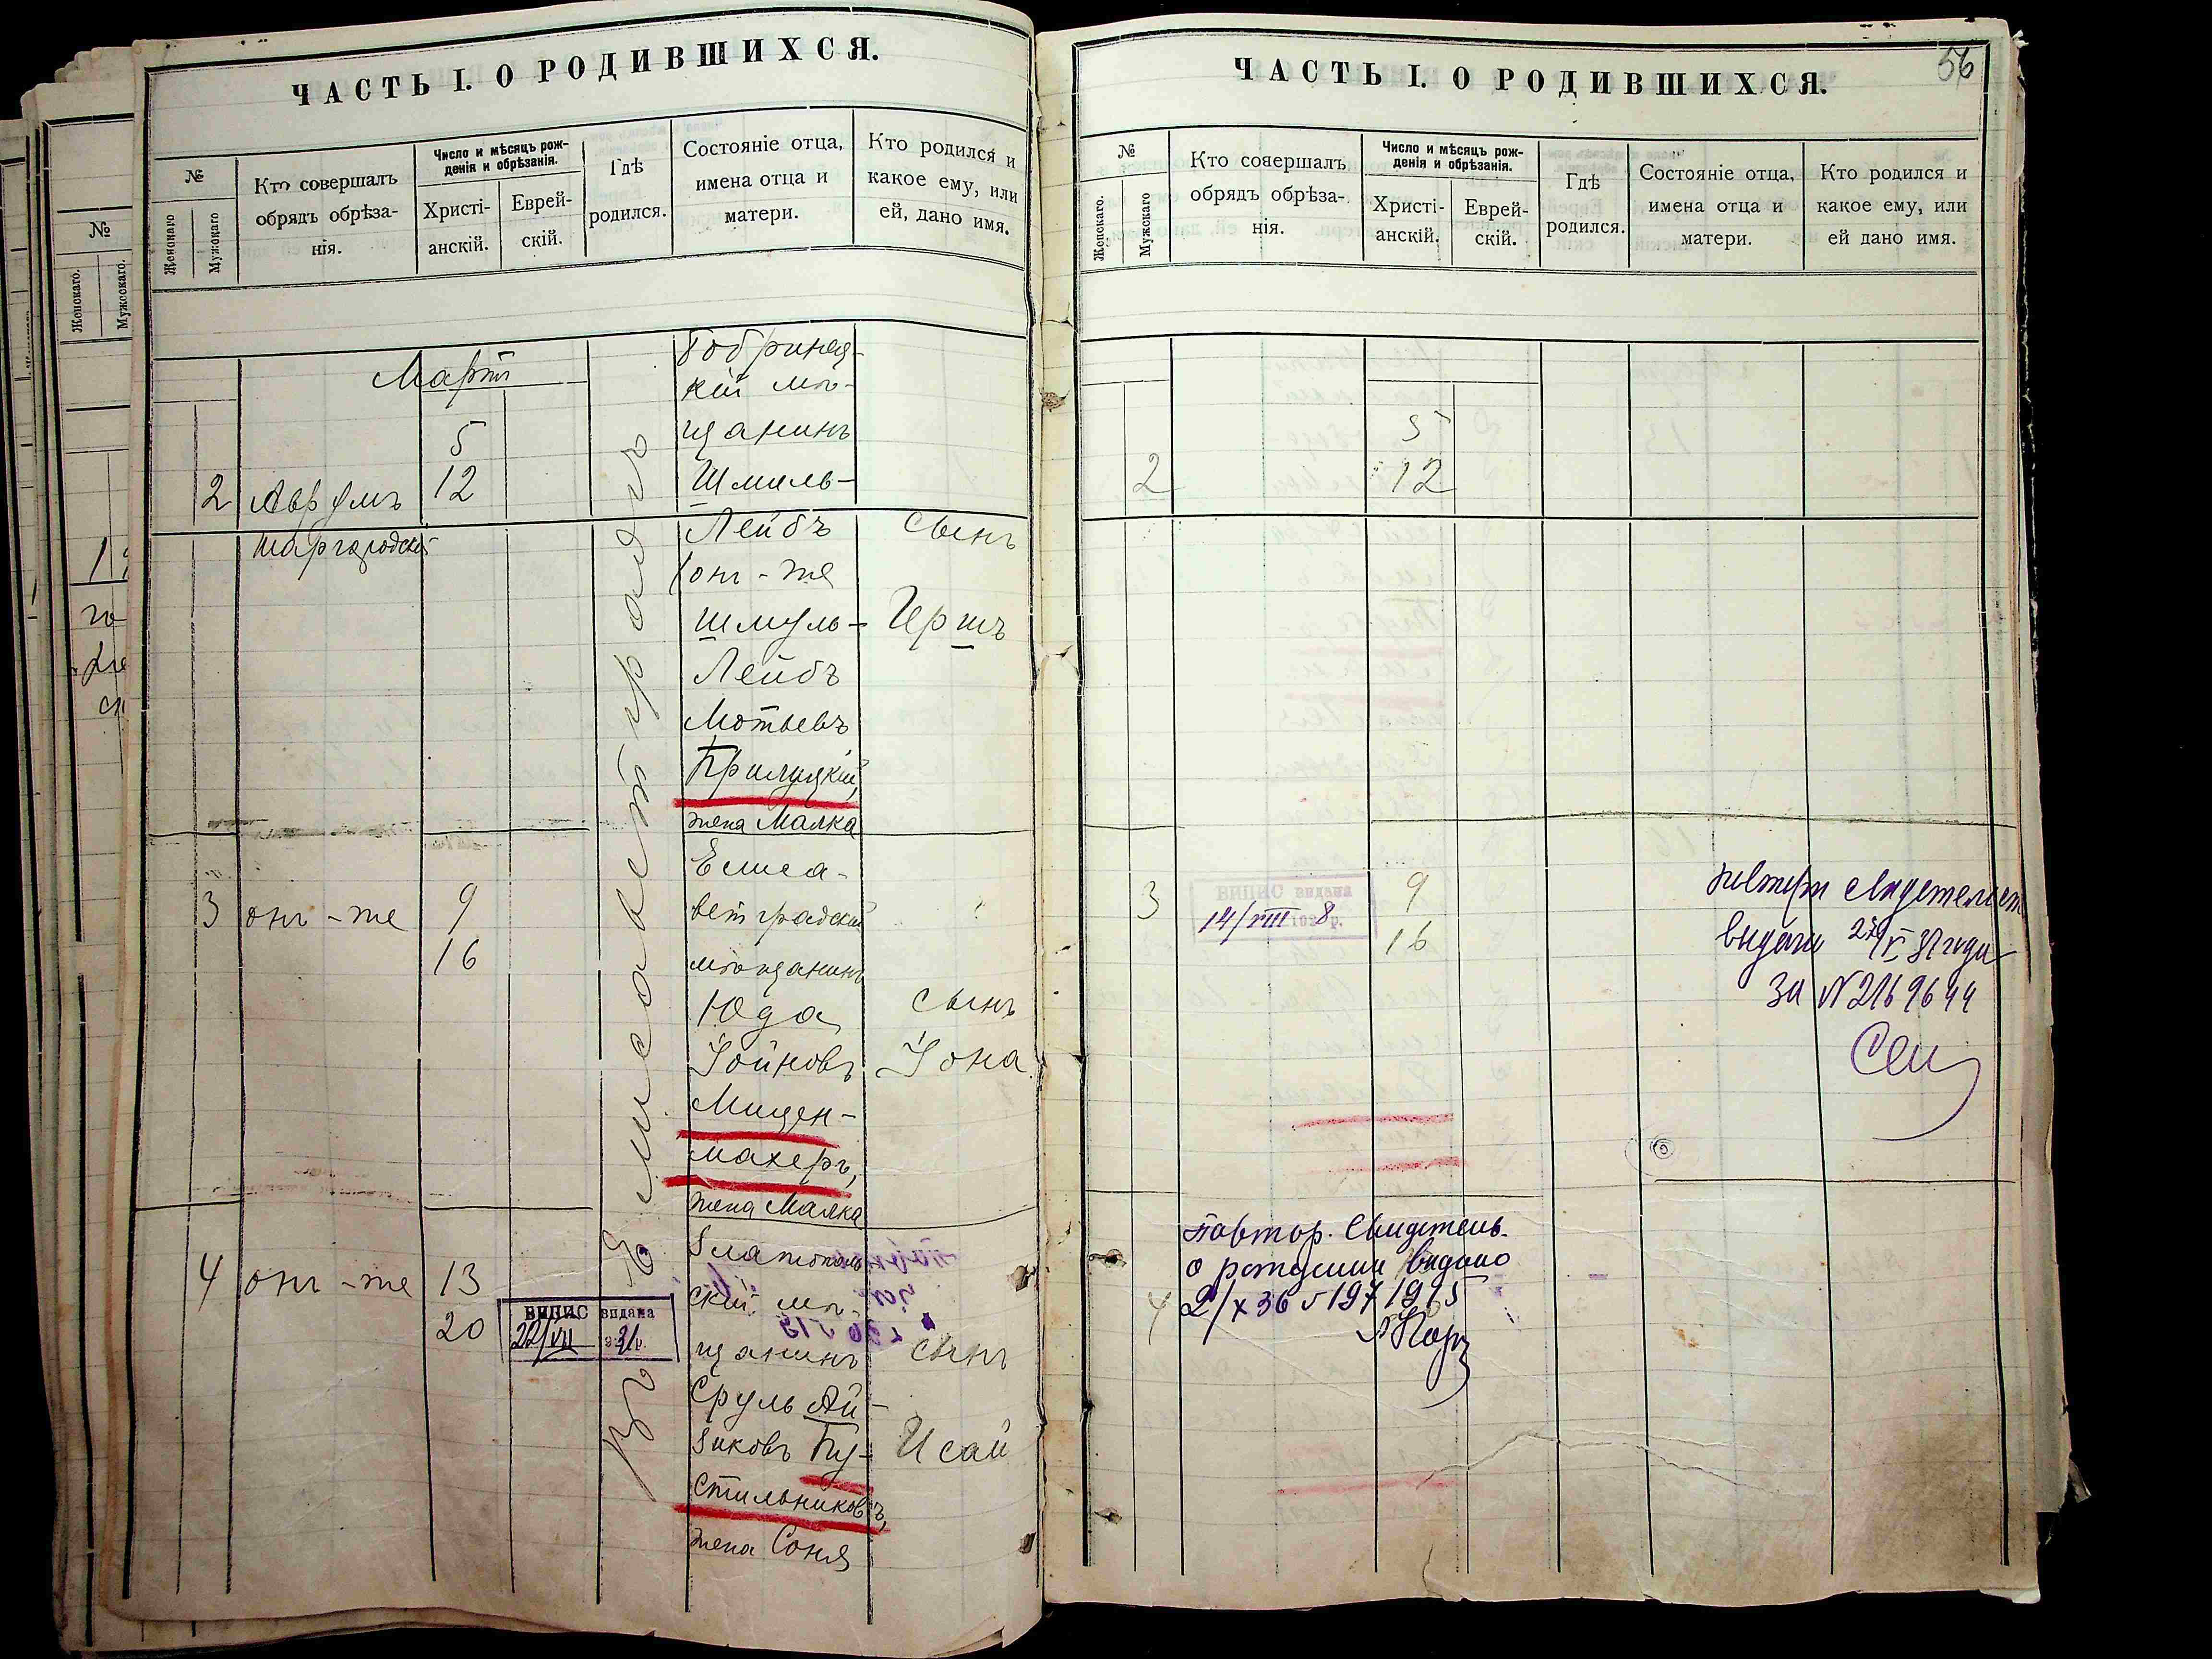 ЧАСТЬ I. О РОДИВШИХСЯ.
№
Женскаго
Мужскаго
Кто совершалъ
обрядъ обрѣза-
нія.
Число и мѣсяцъ рож-
денія и обрѣзанія.
Христі-
анскій.
Еврей-
скій.
Гдѣ
родился.
Состояніе отца,
имена отца и
матери.
Кто родился и
какое ему, или
ей, дано имя.
Мартъ
2
Аврумъ
Шаргородскій
5
12
Въ Елисаветградѣ
Бобринец-
кій мѣ-
щанинъ
Шмиль-
Лейбъ
(онъ-же
Шмуль-
Лейбъ
Мотьевъ
Прилуцкій,
жена Малка
Сынъ
Гершъ
3
онъ-же
9
16
Елиса-
ветградскій
мѣщанинъ
Юда
Іойновъ
Мицен-
махеръ,
жена Малка
Сынъ
Іона
4
онъ-же
13
20
ВИПИС видана
22/VII 1931р.
скій мѣ-
щанинъ
Сруль Ай-
зиковъ Пу-
стильниковъ,
жена Соня
сынъ
Исай
ЧАСТЬ I. О РОДИВШИХСЯ.
56
№
Женскаго.
Мужскаго
Кто совершалъ
обрядъ обрѣза-
нія.
Число и мѣсяцъ рож-
денія и обрѣзанія.
Христі-
анскій.
Еврей-
скій.
Гдѣ
родился.
Состояніе отца,
имена отца и
матери.
Кто родился и
какое ему, или
ей дано имя.
2
5
12
3
ВИПИС видана
14/VIII 192 8 р.
9
16
видано 27/V 37 года
за N 2169644
4
Повтор. Свидетель.
о рождении видано
2/X 36